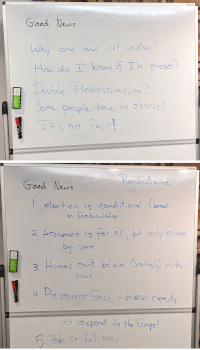 Good News
Why one and not another?
How do I know if I'm chosen?
Double Predestination?
Some people have no chance?
It's not fair!
Good News Remonstrance
1. election is conditional (based
on foreknowledge)
2. Atonement is for all, but only
by some
3. Humans can't believe (savingly) on their
own
4. Prevenient Grace - universal capacity
to respond to the Gospel
5. can fall away